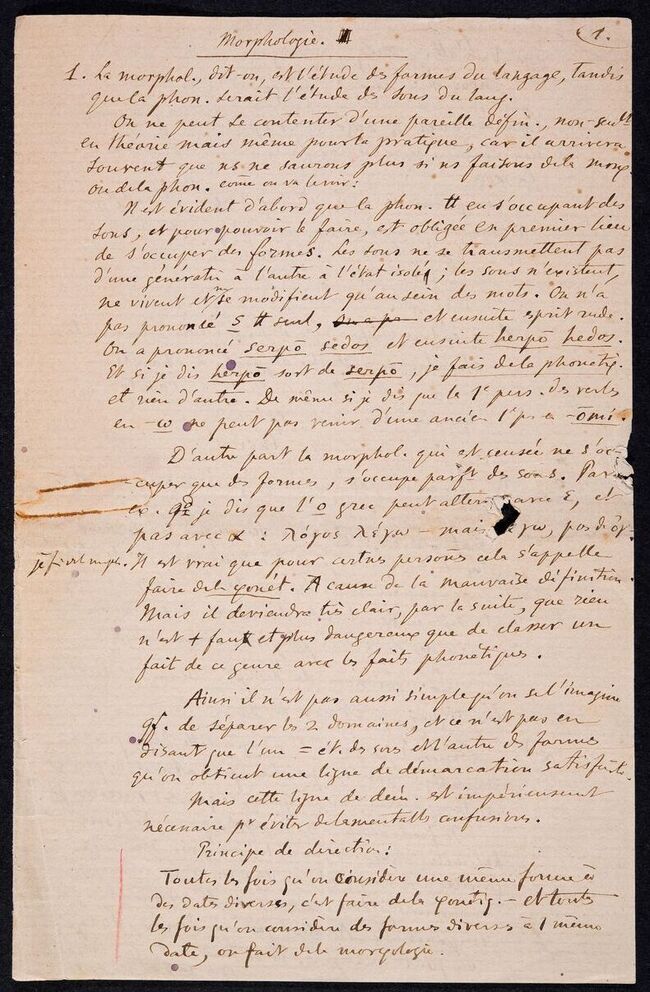 1.
Morphologie.
1. La morphol., dit-on, est l'étude des formes du langage, tandis
que la phon. serait l'étude des sons du lang.
On ne peut se contenter d'une pareille défin., non-seult
en théorie mais même pour la pratique, car il arrivera
souvent que ns ne saurons plus si ns faisons de la morφ.
ou de la phon. comme on va le voir:
Il est évident d'abord que la phon. tt en s'occupant des
sons, et pour pouvoir le faire, est obligée en premier lieu
de s'occuper des formes. Les sons ne se transmettent pas
d'une génération à l'autre à l'état isolé; les sons n'existent,
ne vivent et ne se modifient qu'au sein des mots. On n'a
pas prononcé s tt seul, et ensuite esprit rude.
On a prononcé serpō sedos et ensuite herpō hedos.
Et si je dis herpō sort de serpō, je fais de la phonétiq.
et rien d'autre. De même si je dis que la 1e pers. des verbes
en -ω ne peut pas venir d'une ancien 1e ps en -ōmi.
D'autre part la morphol. qui est censée ne s'oc-
cuper que des formes, s'occupe parft des sons. Par
ex. qd je dis que l'o grec peut alterner avec ε, et
pas avec α : λόγος λέγω – mais ἄγω, pas d'ὄγ.
Il est vrai que pour certnes personnes cela s'appelle
faire de la φonét. A cause de la mauvaise définition.
Mais il deviendra très clair, par la suite, que rien
n'est + faux et plus dangereux que de classer un
fait de ce genre avec les faits phonétiques.
Ainsi il n'est pas aussi simple qu'on se l'imagine
qqf. de séparer les 2 domaines, et ce n'est pas en
disant que l'un = ét. des sons et l'autre des formes
qu'on obtient une ligne de démarcation satisfaite.
Mais cette ligne de dém. est impérieusemt
nécessaire pr éviter de lamentables confusions.
Principe de direction:
Toutes les fois qu'on considère une même forme à
des dates diverses, c'est faire de la φonétiq. – et toutes
les fois qu'on considère des formes diverses à 1 même
date, on fait de la morφologie.